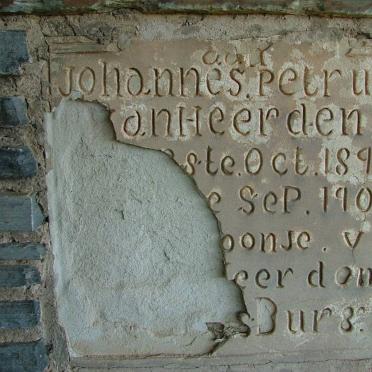 aar
Johannes. Petru
anHeerden
ste. Oct. 189
e SeP. 190
ponse. v
eerden
Burg